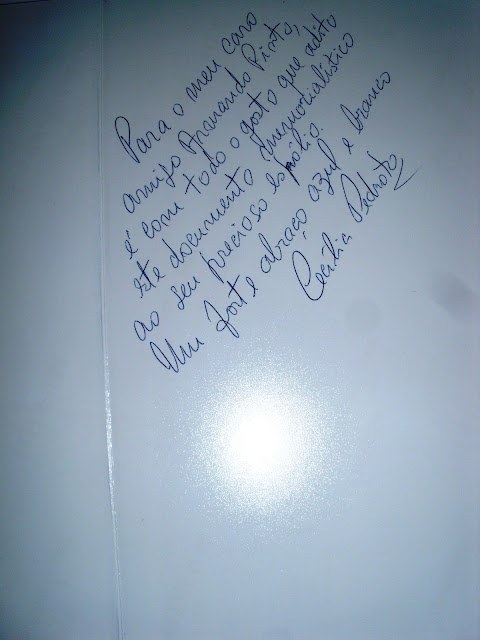 Para o meu caro
amigo Armando Pinto,
é com todo o gosto que adito
este documento memorialístico
ao seu precioso espólio.
Um forte abraço azul e branco
Cecília Pedroto